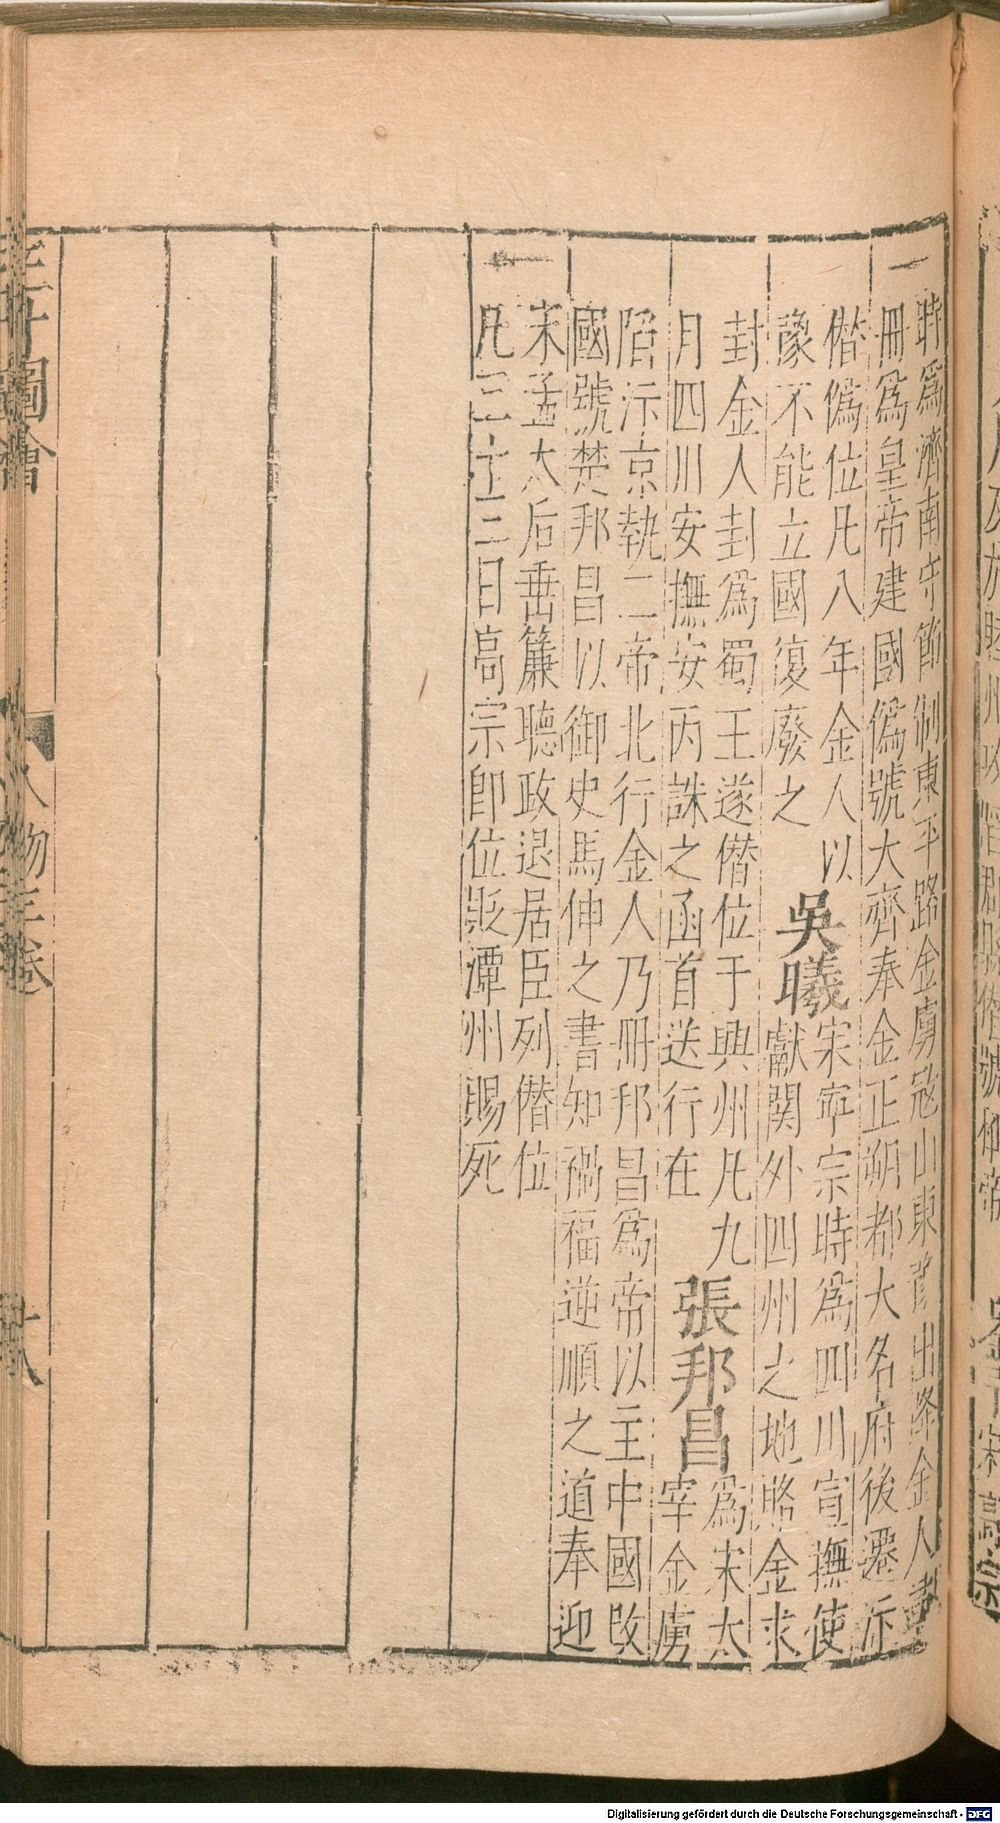 時爲濟南守節制東平路金虜寇山東豫出降金人
冊爲皇帝建國僞號大齊奉金正朔都大名府後遷汴
僭僞位凡八年金人以
豫不能立國復廢之
吳曦
宋寧宗時爲四川宣撫使
獻關外四州之地賂金求
封金人封爲蜀王遂僭位于興州凡九
月四川安撫安丙誅之函首送行在
張邦昌
爲宋太
宰金虜
陷汴京執二帝北行金人乃冊邦昌爲帝以主中國改
國號楚邦昌以御史馬伸之書知禍福逆順之道奉迎
宋孟太后垂簾聽政退居臣列僭位
凡三十三日高宗卽位貶潭州賜死
三才圖會
人物三卷
Digitalisierung gefördert durch die Deutsche Forschungsgemeinschaft - DFG